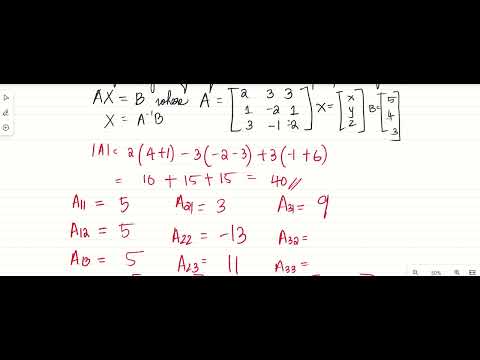 AX = B where A = [2 3 3 1 -2 1 3 -1 -2] X = [x y z] B = [5 4 3]
X = A⁻¹B
|A| = 2(4+1) - 3(-2-3) + 3(-1+6)
= 10 + 15 + 15 = 40 //
A11 = 5 A21 = 3 A31 = 9
A12 = 5 A22 = -13 A32 =
A13 = 5 A23 = 11 A33 =
50%